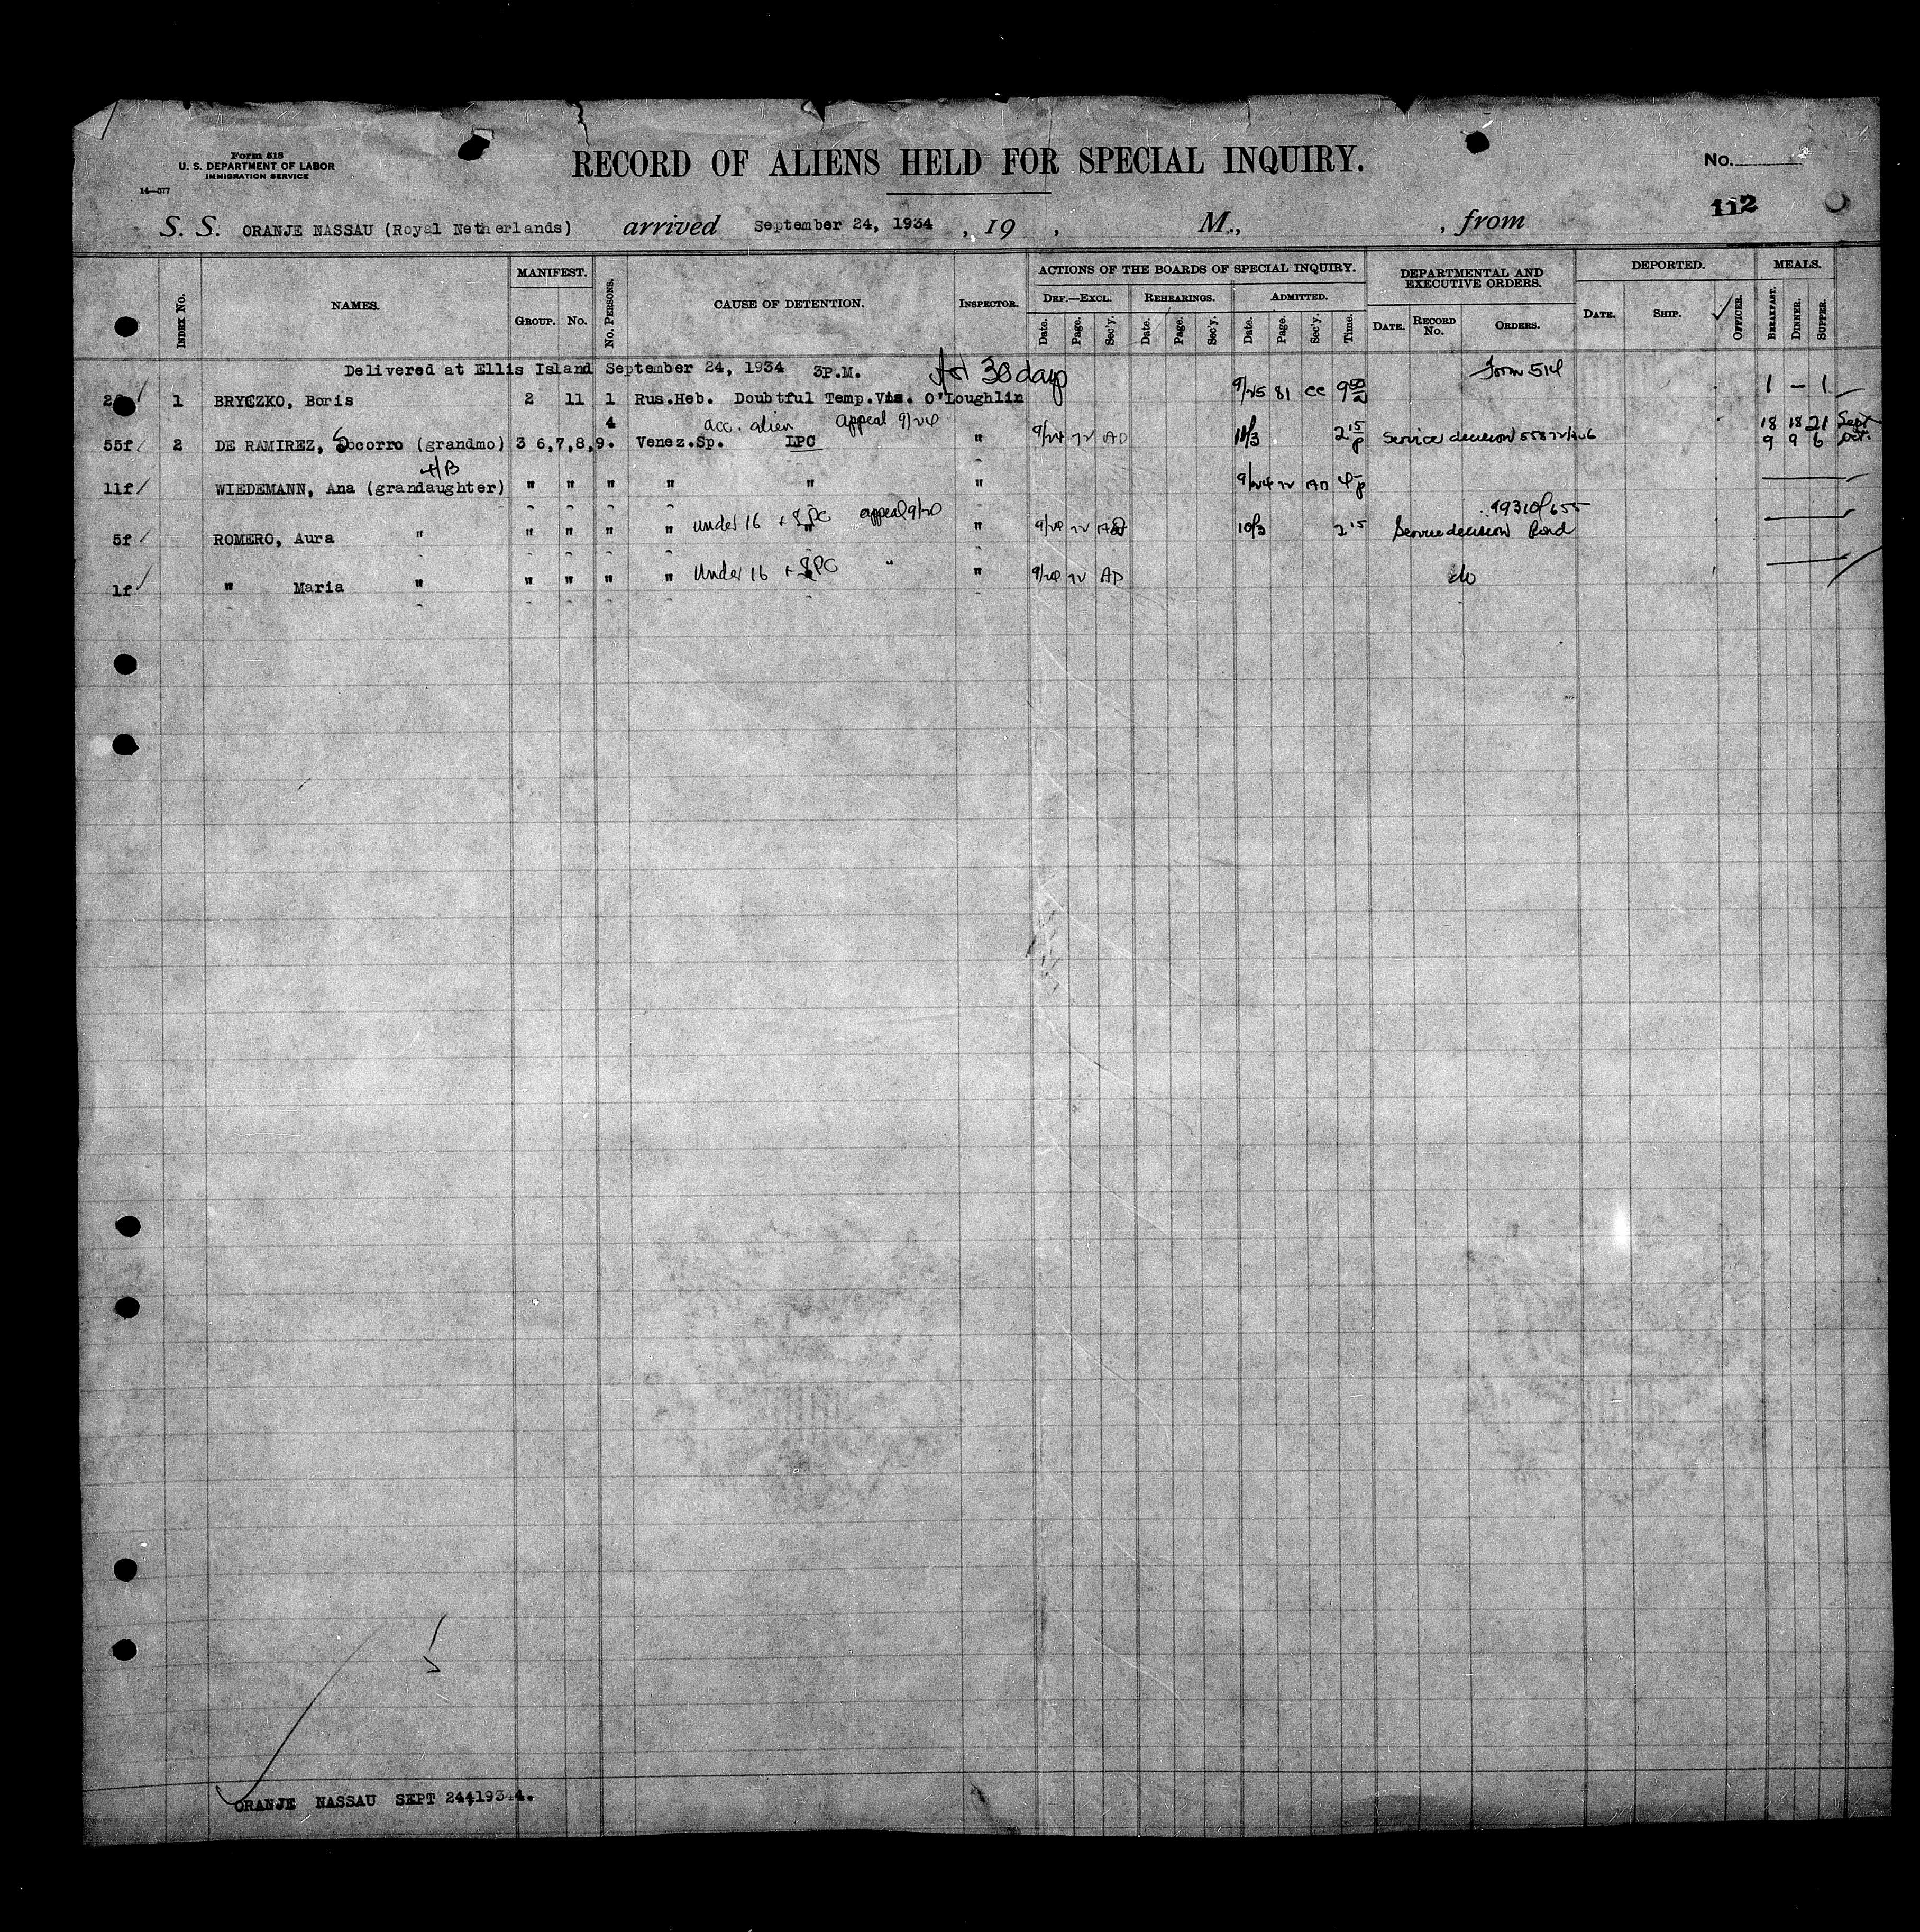 Form 518
U. S. DEPARTMENT OF LABOR
IMMIGRATION SERVICE
14—577
RECORD OF ALIENS HELD FOR SPECIAL INQUIRY.
No.
112
S. S. ORANJE NASSAU (Royal Netherlands) arrived September 24, 1934 , 19 , M., , from
Index No. NAMES. MANIFEST. Group. No. No. Persons. CAUSE OF DETENTION. Inspector. ACTIONS OF THE BOARDS OF SPECIAL INQUIRY. Def.—Excl. Date. Page. Sec'y. Rehearings. Date. Page. Sec'y. Admitted. Date. Page. Sec'y. Time. DEPARTMENTAL AND EXECUTIVE ORDERS. Date. Record No. Orders. DEPORTED. Date. Ship. Officer. MEALS. Breakfast. Dinner. Supper.
Delivered at Ellis Island September 24, 1934 3P.M. for 30 days Form 514
1 BRYCZKO, Boris 2 11 1 Rus.Heb. Doubtful Temp.Vis. O'Loughlin 9/25 81 CC 9 00 a 1 — 1
4 acc. alien appeal 9/24 18 18 21 Sept
55f 2 DE RAMIREZ, Socorro (grandmo) 3 6,7,8,9. Venez.Sp. LPC " 9/24 72 AD 10/3 2 15 p Service decision 9 9 6 Oct.
HB
11f WIEDEMANN, Ana (grandaughter) " " " " " " 9/24 72 AD
under 16 + LPC appeal 9/24 99310/655
5f ROMERO, Aura " " " " " " " 9/24 72 AD 10/3 2 15 Service decision Bond
Under 16 + LPC "
1f " Maria " " " " " " 9/24 72 AD do
ORANJE NASSAU SEPT 24,1934.